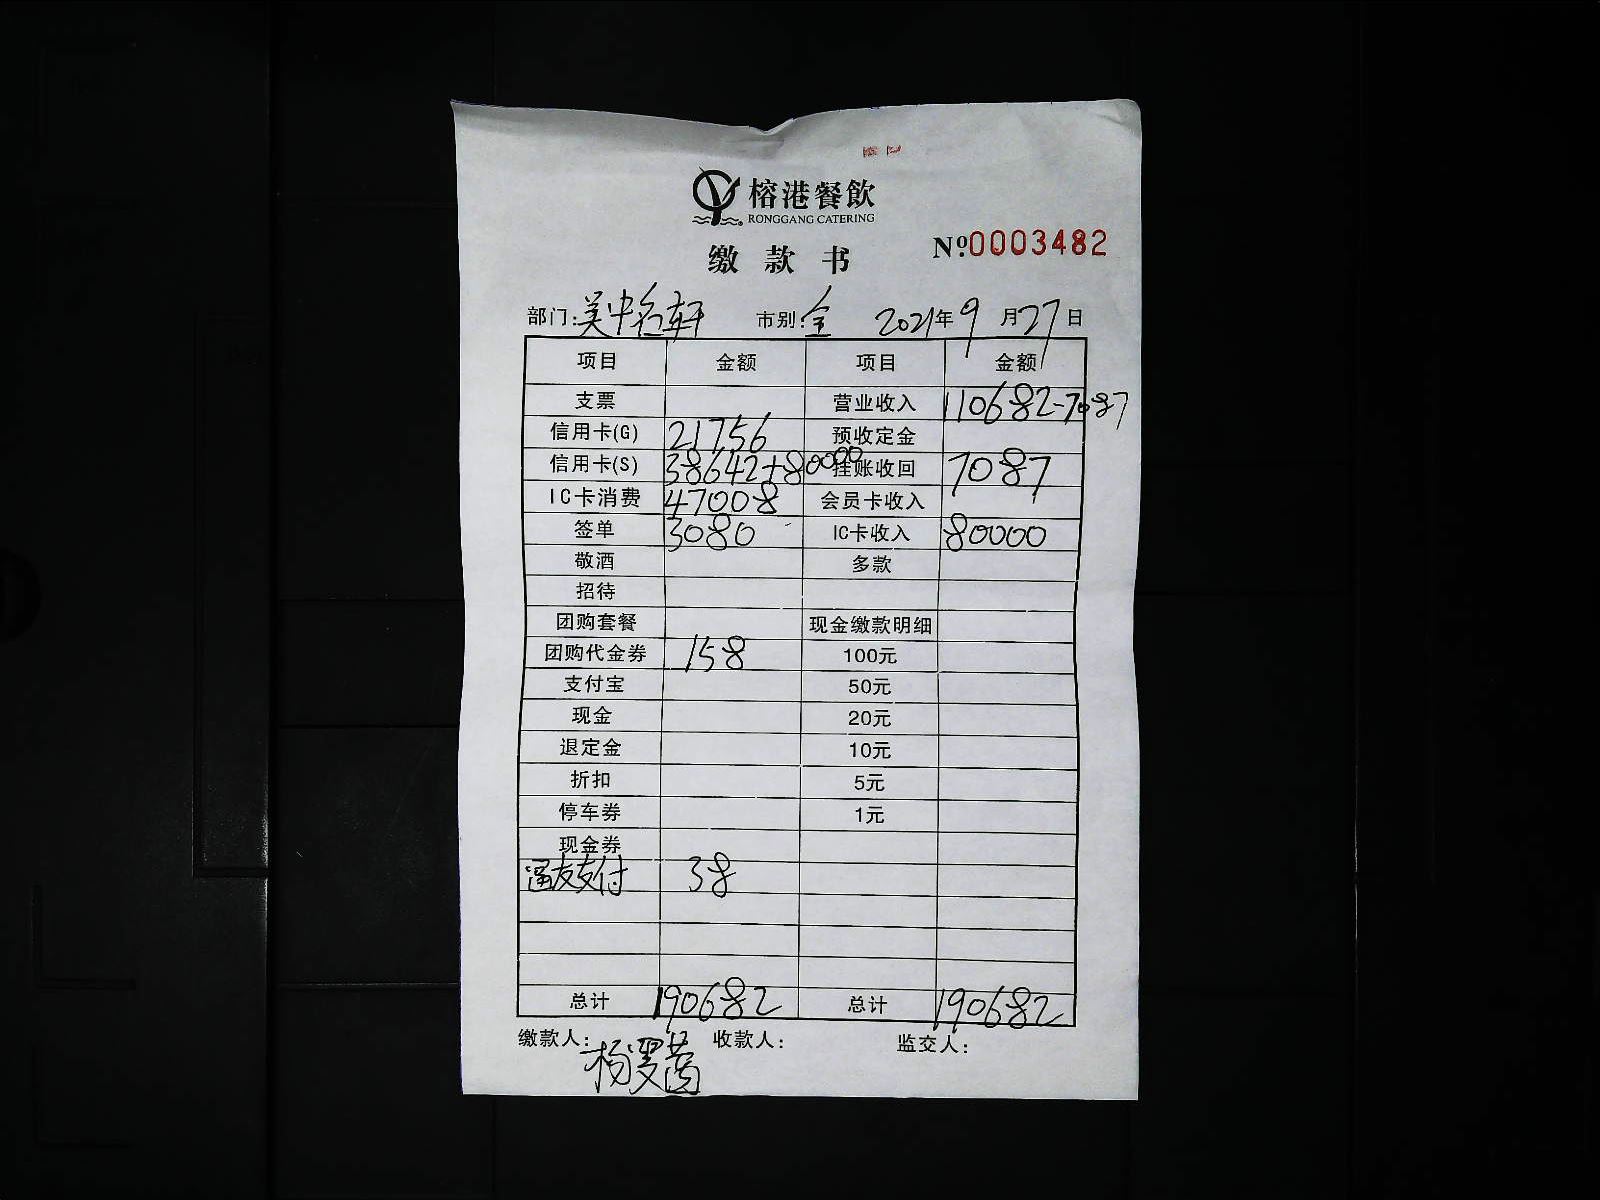 榕港餐飲
RONGGANG CATERING
缴款书 №0003482
部门:吴中名轩 市别:全 2021年9月27日
项目 金额 项目 金额
支票 营业收入 110682-7087
信用卡(G) 21756 预收定金
信用卡(S) 38642+80000 挂账收回 7087
IC卡消费 47008 会员卡收入
签单 3080 IC卡收入 80000
敬酒 多款
招待
团购套餐 现金缴款明细
团购代金券 158 100元
支付宝 50元
现金 20元
退定金 10元
折扣 5元
停车券 1元
现金券
支付 38
总计 190682 总计 190682
缴款人: 杨 收款人: 监交人: